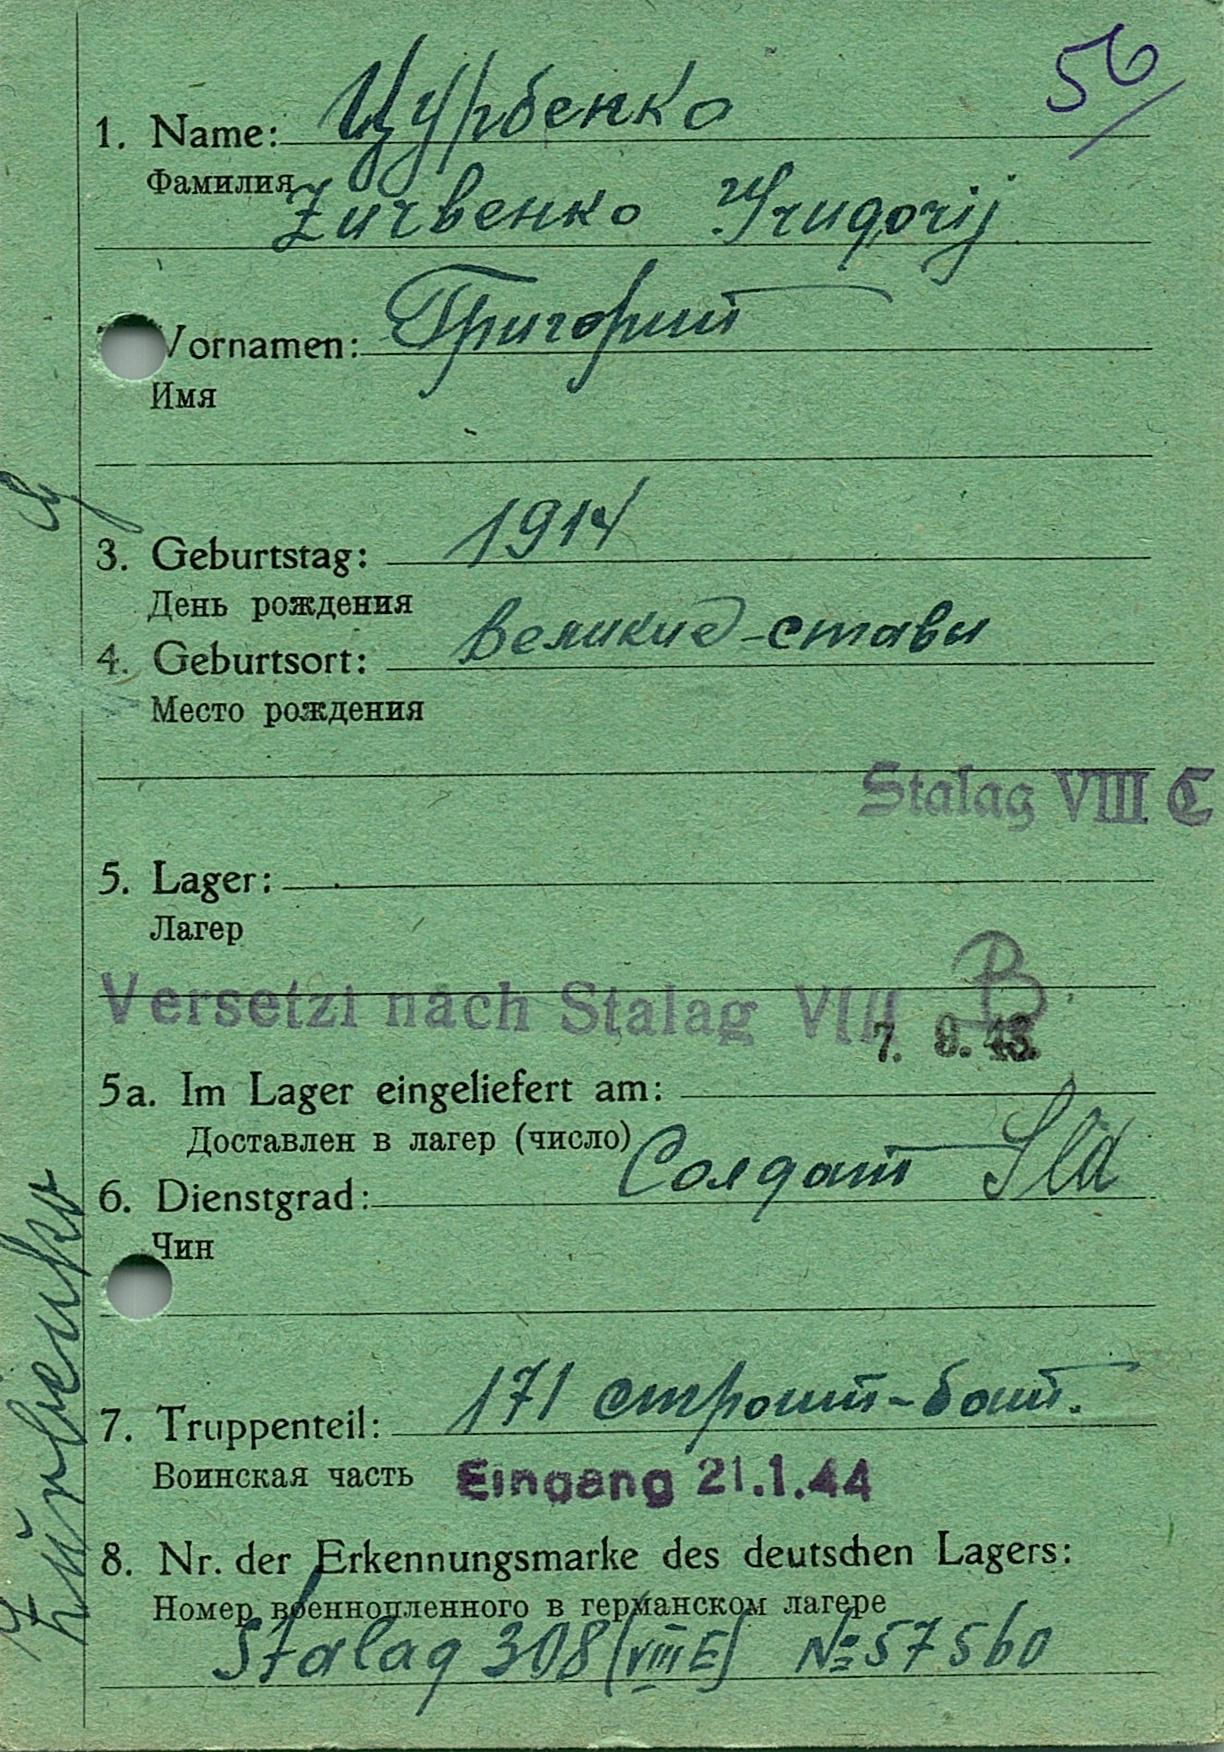 56
1. Name: Цурбенко
Фамилия
Zurbенко Grugorij
Vornamen: Григорий
Имя
3. Geburtstag: 1914
День рождения
4. Geburtsort: Великие-ставы
Место рождения
Stalag VIII C
5. Lager:
Лагер
Versetzt nach Stalag VIII B
7. 9. 43.
5a. Im Lager eingeliefert am:
Доставлен в лагер (число)
6. Dienstgrad: Солдат Sld
Чин
7. Truppenteil: 171 строит-бат.
Воинская часть
Eingang 21.1.44
8. Nr. der Erkennungsmarke des deutschen Lagers:
Номер военнопленного в германском лагере
Stalag 308 (VIII E) №57560
Zurbenko